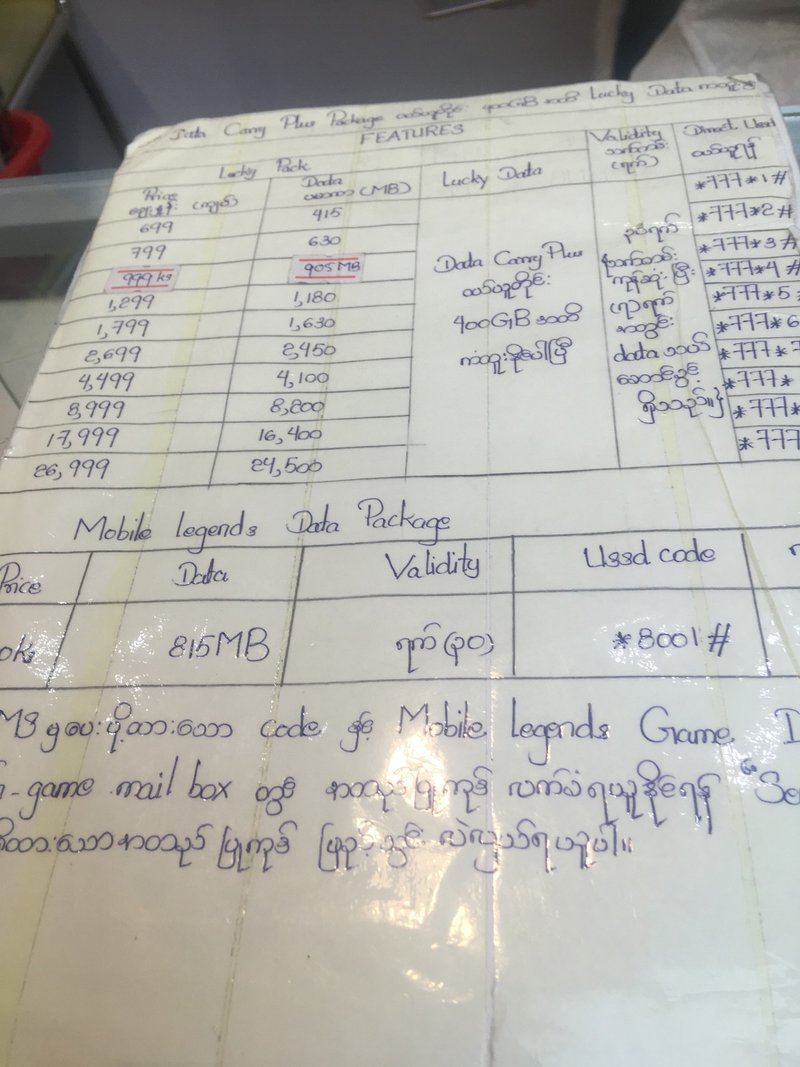 Data Carry Plus Package ဝယ်ယူတိုင်း 400GB အထိ Lucky Data
FEATURES
Lucky Pack
Lucky Data
Validity သက်တမ်း (ရက်)
Direct Ussd
Price ဈေးနှုန်း (ကျပ်)
Data ပမာဏ (MB)
699 415 *777*1#
799 630 *777*2#
999 ks 905MB *777*3#
1,299 1,180 *777*4#
1,799 1,630 *777*5
2,699 2,450 *777*6
4,499 4,100 *777*7
8,999 8,200 *777*
17,999 16,400 *777*
26,999 24,500 *777
Data Carry Plus
ဝယ်ယူတိုင်း
400GB အထိ
ကံထူးနိုင်ပါပြီ
၃၀ရက်
(သက်တမ်း
ကုန်ဆုံးပြီး
(၇)ရက်
အတွင်း
data သယ်
ဆောင်ခွင့်
ရှိသည်။)
Mobile legends Data Package
Price Data Validity Ussd code
0ks 815MB ရက် (၃၀) *8001#
MS မှပေးပို့ထားသော code နှင့် Mobile legends Game
-game mail box တွင် အသုံးပြုကုဒ် လက်ခံရယူနိုင်ရန် "Se
ထားသောအသုံးပြုကုဒ် ဖြည့်သွင်း လဲလှယ်ရယူပါ။